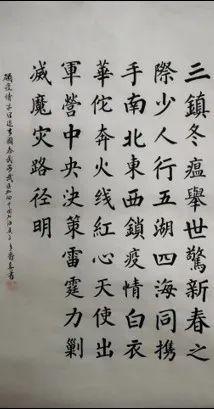 三鎮冬瘟舉世驚新春之
際少人行五湖四海同携
手南北東西鎖疫情白衣
華佗奔火线紅心天使出
軍營中央决策雷霆力剿
滅魔灾路径明